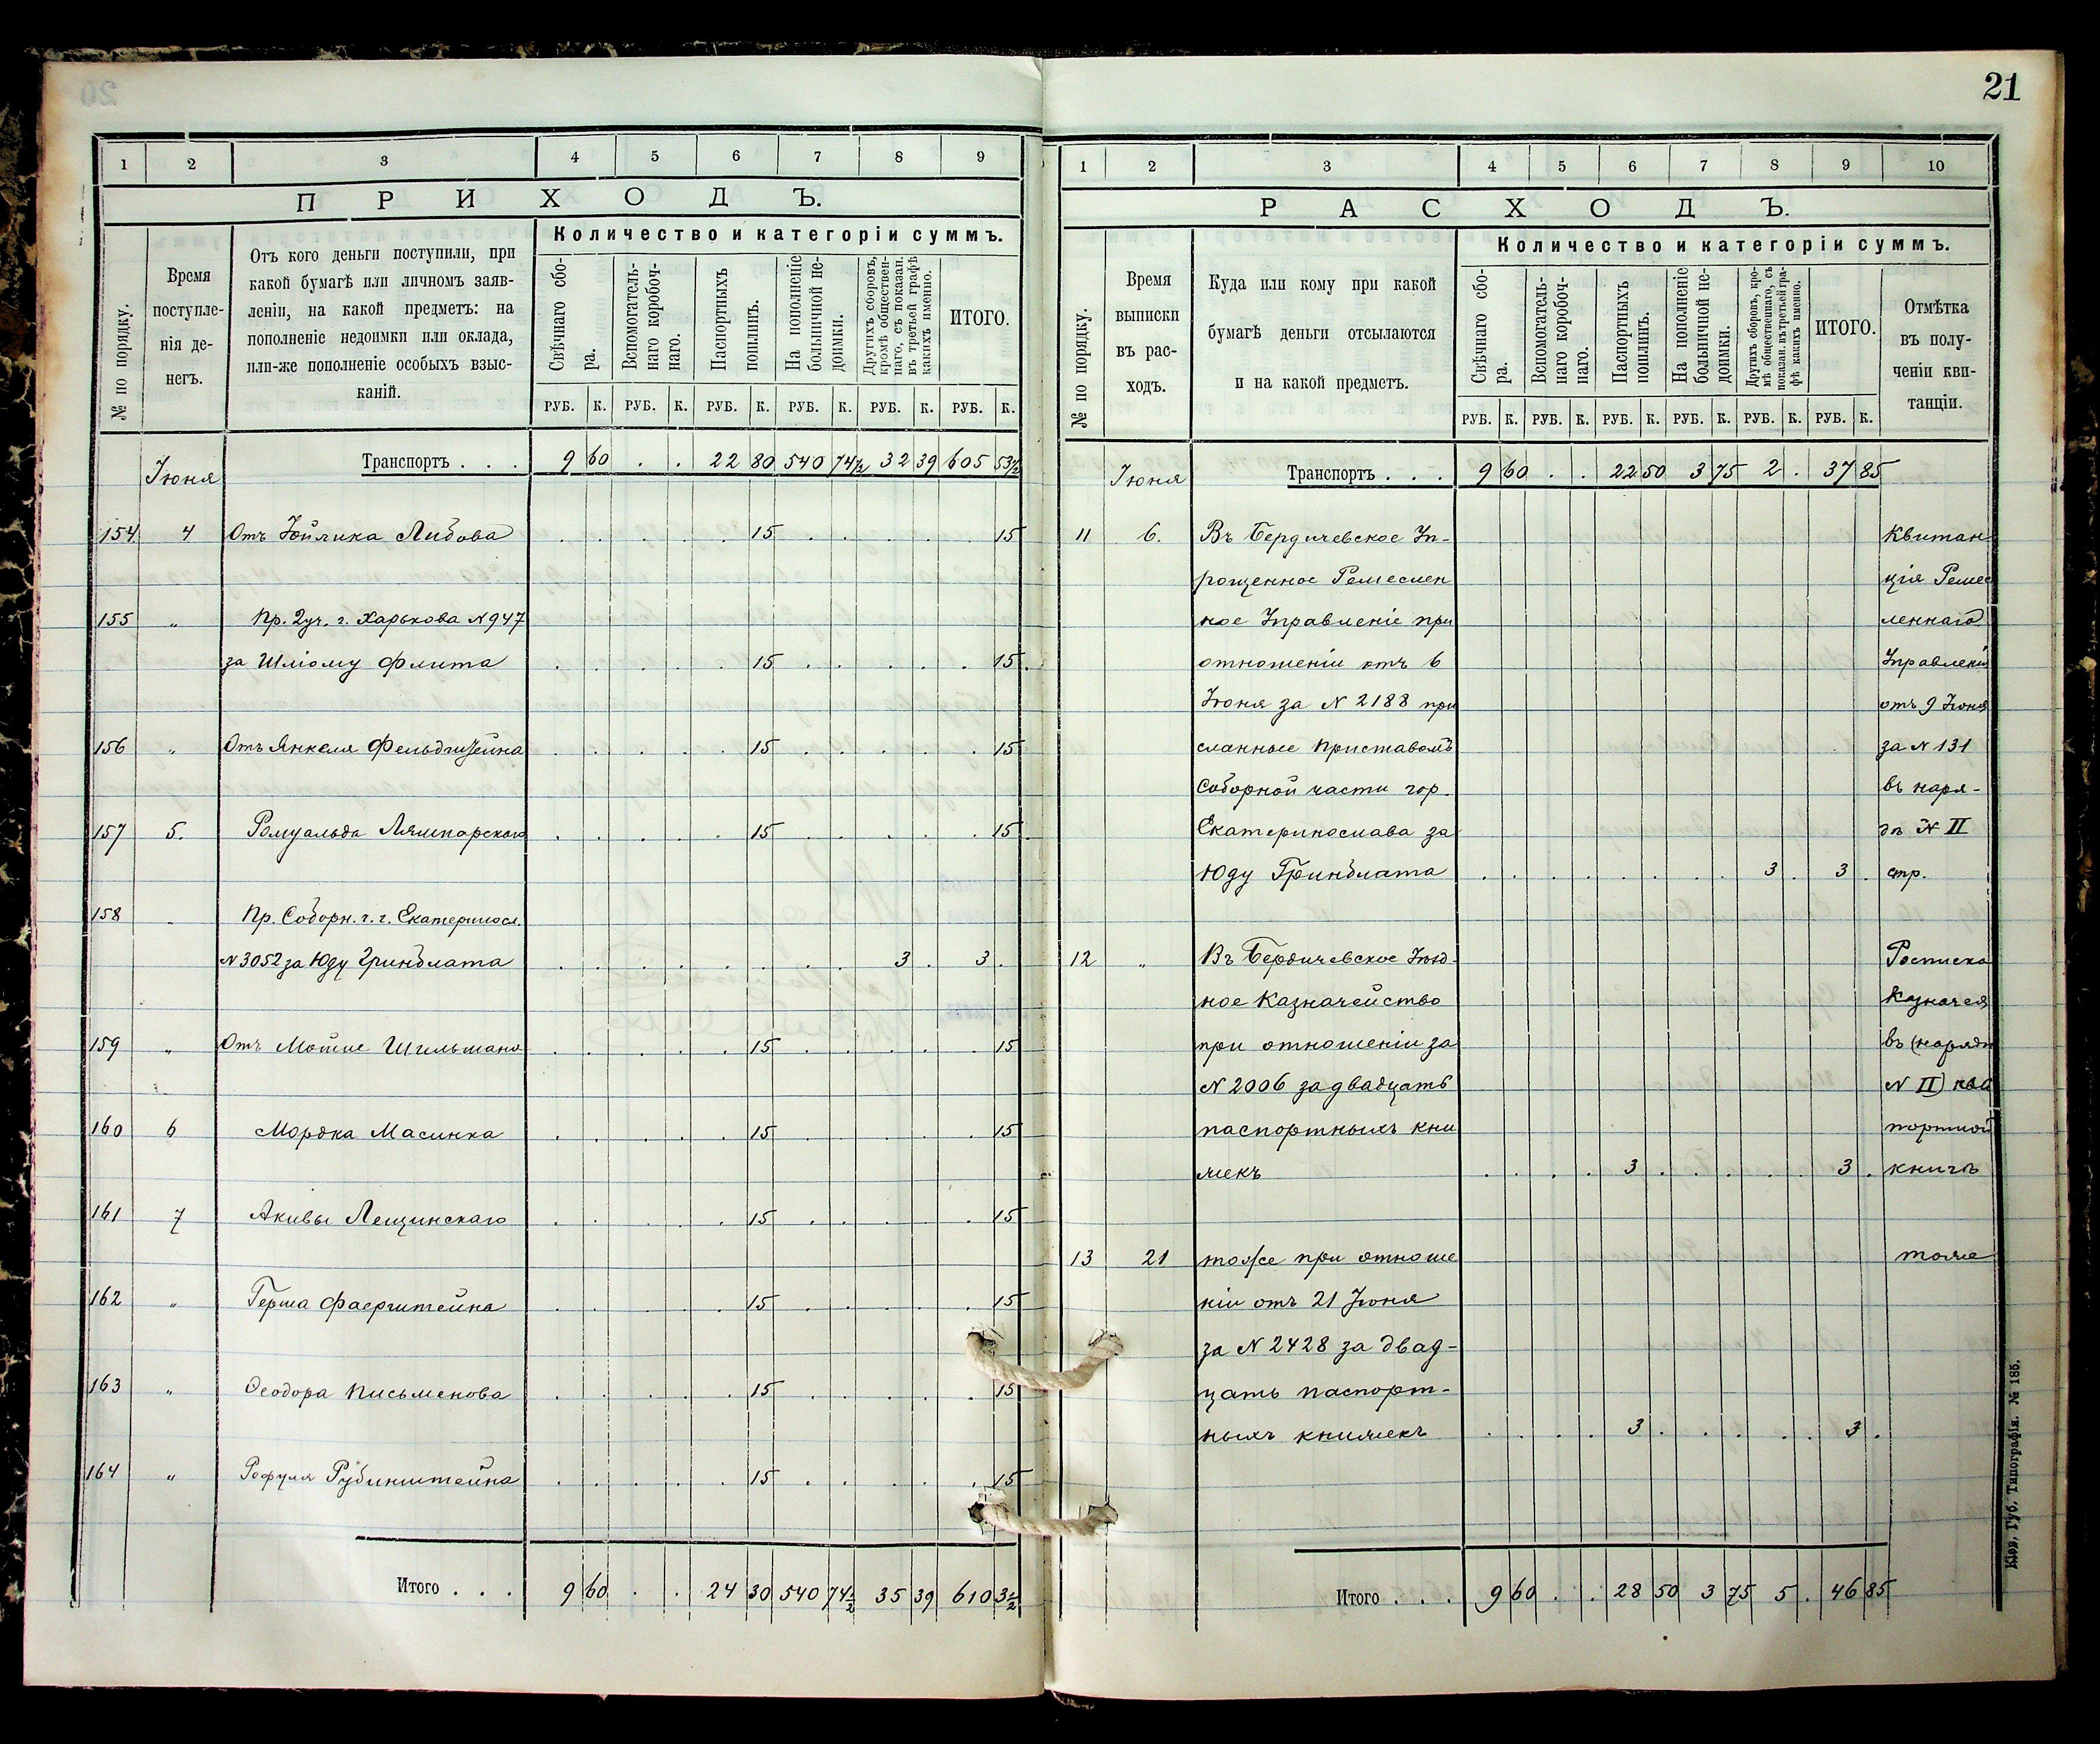 21
1 2 3 4 5 6 7 8 9
ПРИХОДЪ.
№ по порядку.
Время
поступле-
нія де-
негъ.
Отъ кого деньги поступили, при
какой бумагѣ или личномъ заяв-
леніи, на какой предметъ: на
пополненіе недоимки или оклада,
или-же пополненіе особыхъ взыс-
каній.
Количество и категоріи суммъ.
Свѣчнаго сбо-
ра.
Вспомогатель-
наго коробоч-
наго.
Паспортныхъ
пошлинъ.
На пополненіе
больничной не-
доимки.
Другихъ сборовъ,
кромѣ обществен-
наго, съ показан.
въ третьей графѣ
какихъ именно.
ИТОГО.
РУБ. К. РУБ. К. РУБ. К. РУБ. К. РУБ. К. РУБ. К.
Транспортъ . . . 9 60 . . 22 80 540 74½ 32 39 605 53½
Іюня
154 4 Отъ Любова 15 15
155 " Пр. 2 уч. г. Харькова № 947
за Шліому Флита 15 15
156 " Отъ Янкеля Фельдштейна 15 15
157 5. Ромуальда 15 15
158 Пр. Соборн. ч. г. Екатеринося.
№ 3052 за Юду Гринблата 3 . 3 .
159 " Отъ Мошие Шильмана 15 15
160 6 Мордка Масинка 15 15
161 7 Акивы Лещинскаго 15 15
162 " Герша Фаерштейна 15 15
163 " Ѳеодора Письменова 15 15
164 " Рубинштейна 15 15
Итого . . . 9 60 . . 24 30 540 74½ 35 39 610 3½
1 2 3 4 5 6 7 8 9 10
РАСХОДЪ.
№ по порядку.
Время
выписки
въ рас-
ходъ.
Куда или кому при какой
бумагѣ деньги отсылаются
и на какой предметъ.
Количество и категоріи суммъ.
Свѣчнаго сбо-
ра.
Вспомогатель-
наго коробоч-
наго.
Паспортныхъ
пошлинъ.
На пополненіе
больничной не-
доимки.
Другихъ сборовъ, кро-
мѣ общественнаго, съ
показан. въ третьей гра-
фѣ какихъ именно.
ИТОГО.
Отмѣтка
въ полу-
ченіи кви-
танціи.
РУБ. К. РУБ. К. РУБ. К. РУБ. К. РУБ. К. РУБ. К.
Іюня
Транспортъ . . . 9 60 . . 22 50 3 75 2 . 37 85
11 6. Въ Бердичевское Уп- Квитан
рощенное Ремеслен ція Ремес
ное Управленіе при леннаго
отношеніи отъ 6 Управленія
Іюня за № 2188 при отъ 9 Іюня
сланные Приставомъ за № 131
Соборной части гор. въ наря-
Екатеринослава за дѣ № II
Юду Гринблата 3 . 3 . стр.
12 " Въ Бердичевское Уѣзд- Росписка
ное Казначейство Казначея
при отношеніи за въ (нарядѣ
№ 2006 за двадцать № II)
паспортныхъ кни
жекъ 3 . 3 . книгѣ
13 21 тоже при отноше тоже
ніи отъ 21 Іюня
за № 2428 за двад-
цать паспорт-
ныхъ книжекъ 3 . 3 .
Итого . . . 9 60 . . 28 50 3 75 5 . 46 85
Кіев. Губ. Типографія. № 185.